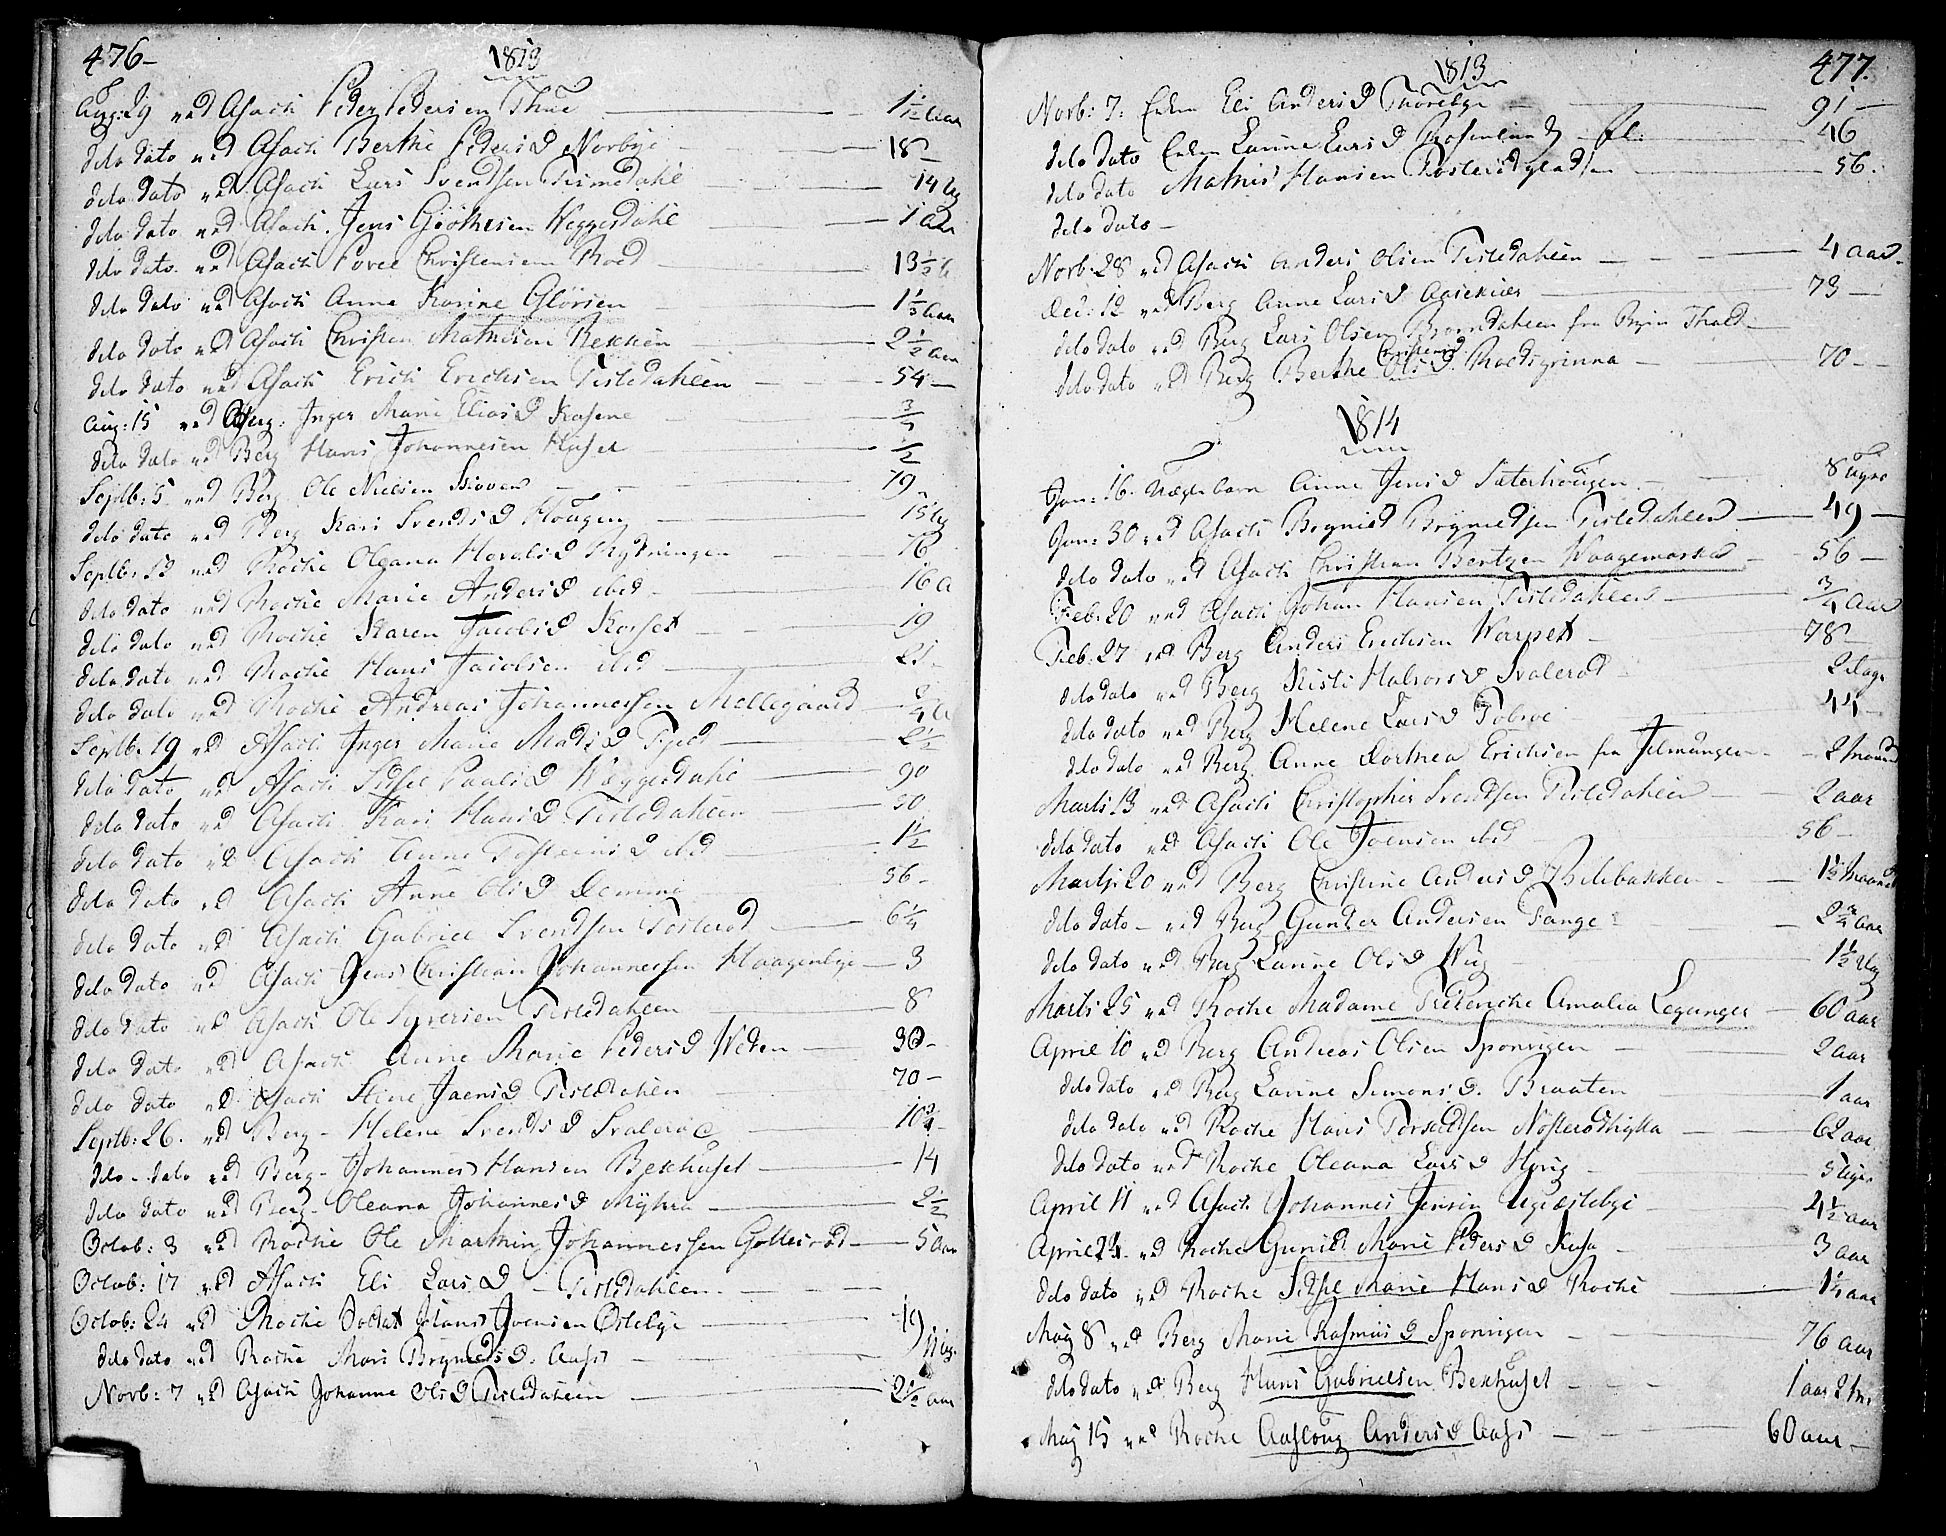 476-
1813
Aug: 29 ved Asach Peder Pedersen Thue 1 1/2 Aar
dito dato ved Asach Berthe Peders D Norbye 18 -
dito dato ved Asach Lars Svendsen Tismedahl 14 Ug
dito dato ved Asach. Jens Giöthesen Weggesdahl 1 Aar
dito dato. ved Asach Povel Christensen Roed 13 1/2 A
dito dato ved Asach Anna Karine Glörsen 1 1/3 Aar
dito dato ved Asach Christen Mathisen Bekken 2 1/2 Aar
dito dato ved Asach Erich Erichsen Tistedahlen 54 -
Aug: 15 ved Berg. Inger Marie Elias D Kasene 3/
dito dato ved Berg Hans Johannesen Huset 1/2
Septb: 5 ved Berg Ole Nielsen 79
dito dato ved Berg Kari Svends D Hougen 15 Ug
Septb: 12 ved Rocke Oleana Horals D Rydningen 76
dito dato ved Rocke Marie Anders D ibid 16 A
dito dato ved Rocke Karen Jacobs D Korset 19
dito dato ved Rocke Hans Jacobsen ibid 21 -
dito dato ved Rocke Andreas Johannessen Mollegaard 3/4 A
Septb: 19 ved Asach Inger Marie Mads D 2 1/2
dito dato ved Asach Sidsel Pauls D Weggesdahl 90
dito dato ved Asach Kari Hans D Tistedahlen 50
dito dato ved Asach Anne Tosteins D ibid 1 1/2
dito dato ved Asach Anne Ols D Damme 56 -
dito dato ved Asach Gabriel Svendsen Tosterod 6 1/4
dito dato ved Asach Jens Christian Johannessen Haagenbye 3
dito dato ved Asach Ole Syversen Tistedahlen 8
dito dato ved Asach Anne Marie Peders D Weden 30 -
dito dato ved Asach Stine Joens D Tistedahlen 70 -
Septb: 26. ved Berg - Helene Svends D Svalerød 10 3/4 -
dito - dato ved Berg - Johannes Hansen Bekhuset 14
dito dato ved Berg - Oleana Johannes D Myhra 2 1/2
Octob: 3 ved Rocke Ole Marthin Johannessen Gollesröd 5 Aar
Octob: 17 ved Asach Eli Lars D - Tistedahlen.
Octob: 24 ved Rocke Soldat Hans Joensen Ostebye 19
dito dato ved Rocke Mari Brynilds D. Aass 11 Ug.
Novb: 7 ved Asach Johanne Ols D Tistedahlen 2 1/2 Aar
1813
477.
Novb: 7. Enken Eli Anders D Thorebye 91 -
dito dato Enken Larine Lars D Rosenlund 46
dito dato Mathis Hansen 56.
dito dato -
Novb: 28 ved Asach Anders Olsen Tistedahlen 4 aar.
Dec: 12 ved Berg Anne Lars D 73 -
dito dato ved Berg Lars Olsen Biorndahlen fra Thald -
Christens D
dito dato ved Berg Berthe Ols D. Roedsgrinna 70 -
1814
Jan: 16. Anne Jens D Sæterhougen 8 Uger
Jan: 30 ved Asach Brynild Brynildsen Tistedahlen 49 -
dito dato ved Asach Christian Bentzen Waagemarken 56 -
Feb: 20 ved Asach Johan Hansen Tistedahlen 3/4 Aar
Feb: 27 ved Berg Anders Erichsen Karpet 78 -
dito dato ved Berg Kisti Halvors D Svalerød 2 dage
dito dato ved Berg Helene Lars D Tobroe 44 -
dito dato ved Berg. Anne Dorthea Erichsen fra 2 Maaned
Marti: 13 ved Asach Christopher Svendsen Tistedahlen 2 aar
dito dato ved Asach Ole Joensen ibid 56 -
Marti: 20 ved Berg Christine Anders D 1 1/2 Maaned
dito dato - ved Berg Gunder Andersen Tange 2 3/4 aar
dito dato ved Berg Larine Ols D Wiig 1 1/2 Ug
Marti 25 ved Rocke Madame Frideriche Amalia Leganger 60 aar
April 10 ved Berg Andreas Olsen Sponvigen 2 aar
dito dato ved Berg Larine Simons D. Braaten 1 aar
dito dato ved Rocke Hans Nosterødhytta 62 aar
dito dato ved Rocke Oleana Lars D 5 Uger
April 11 ved Asach Johannes Jensen 4 1/2 aar
April 24. ved Rocke Gunild Marie Peders D Kasa 3 aar
dito dato ved Rocke Sidsel Marie Hans D Rocke 1 1/4 aar
May 8 ved Berg Marie Rasmus D Sponvigen 76 aar
dito dato ved Berg Hans Gabrielsen Bekhuset 1 aar 2 m.
May 15 ved Rocke Aasloug Anders D Aass 60 aar -